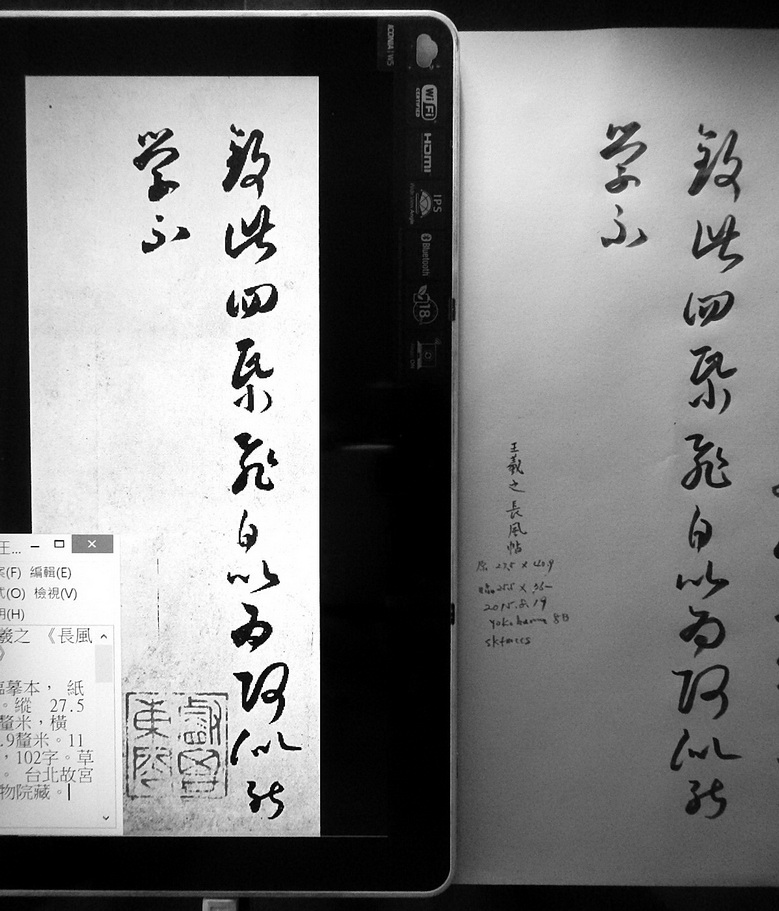 致此四帋飛白以為何似能
学不
ICONIA W5
WiFi
CERTIFIED
HDMI
IPS
Bluetooth
18
王...
案(F) 編輯(E)
式(O) 檢視(V)
明(H)
羲之 《長風
》
臨摹本， 紙
。縱 27.5
釐米，橫
.9釐米。11
，102字。草
。 台北故宮
物院藏。
致此四帋飛白以為何似能
学不
王羲之長風帖
原 27.5 x 40.9
臨 25.5 x
2015.2.19
Yokohama 8B